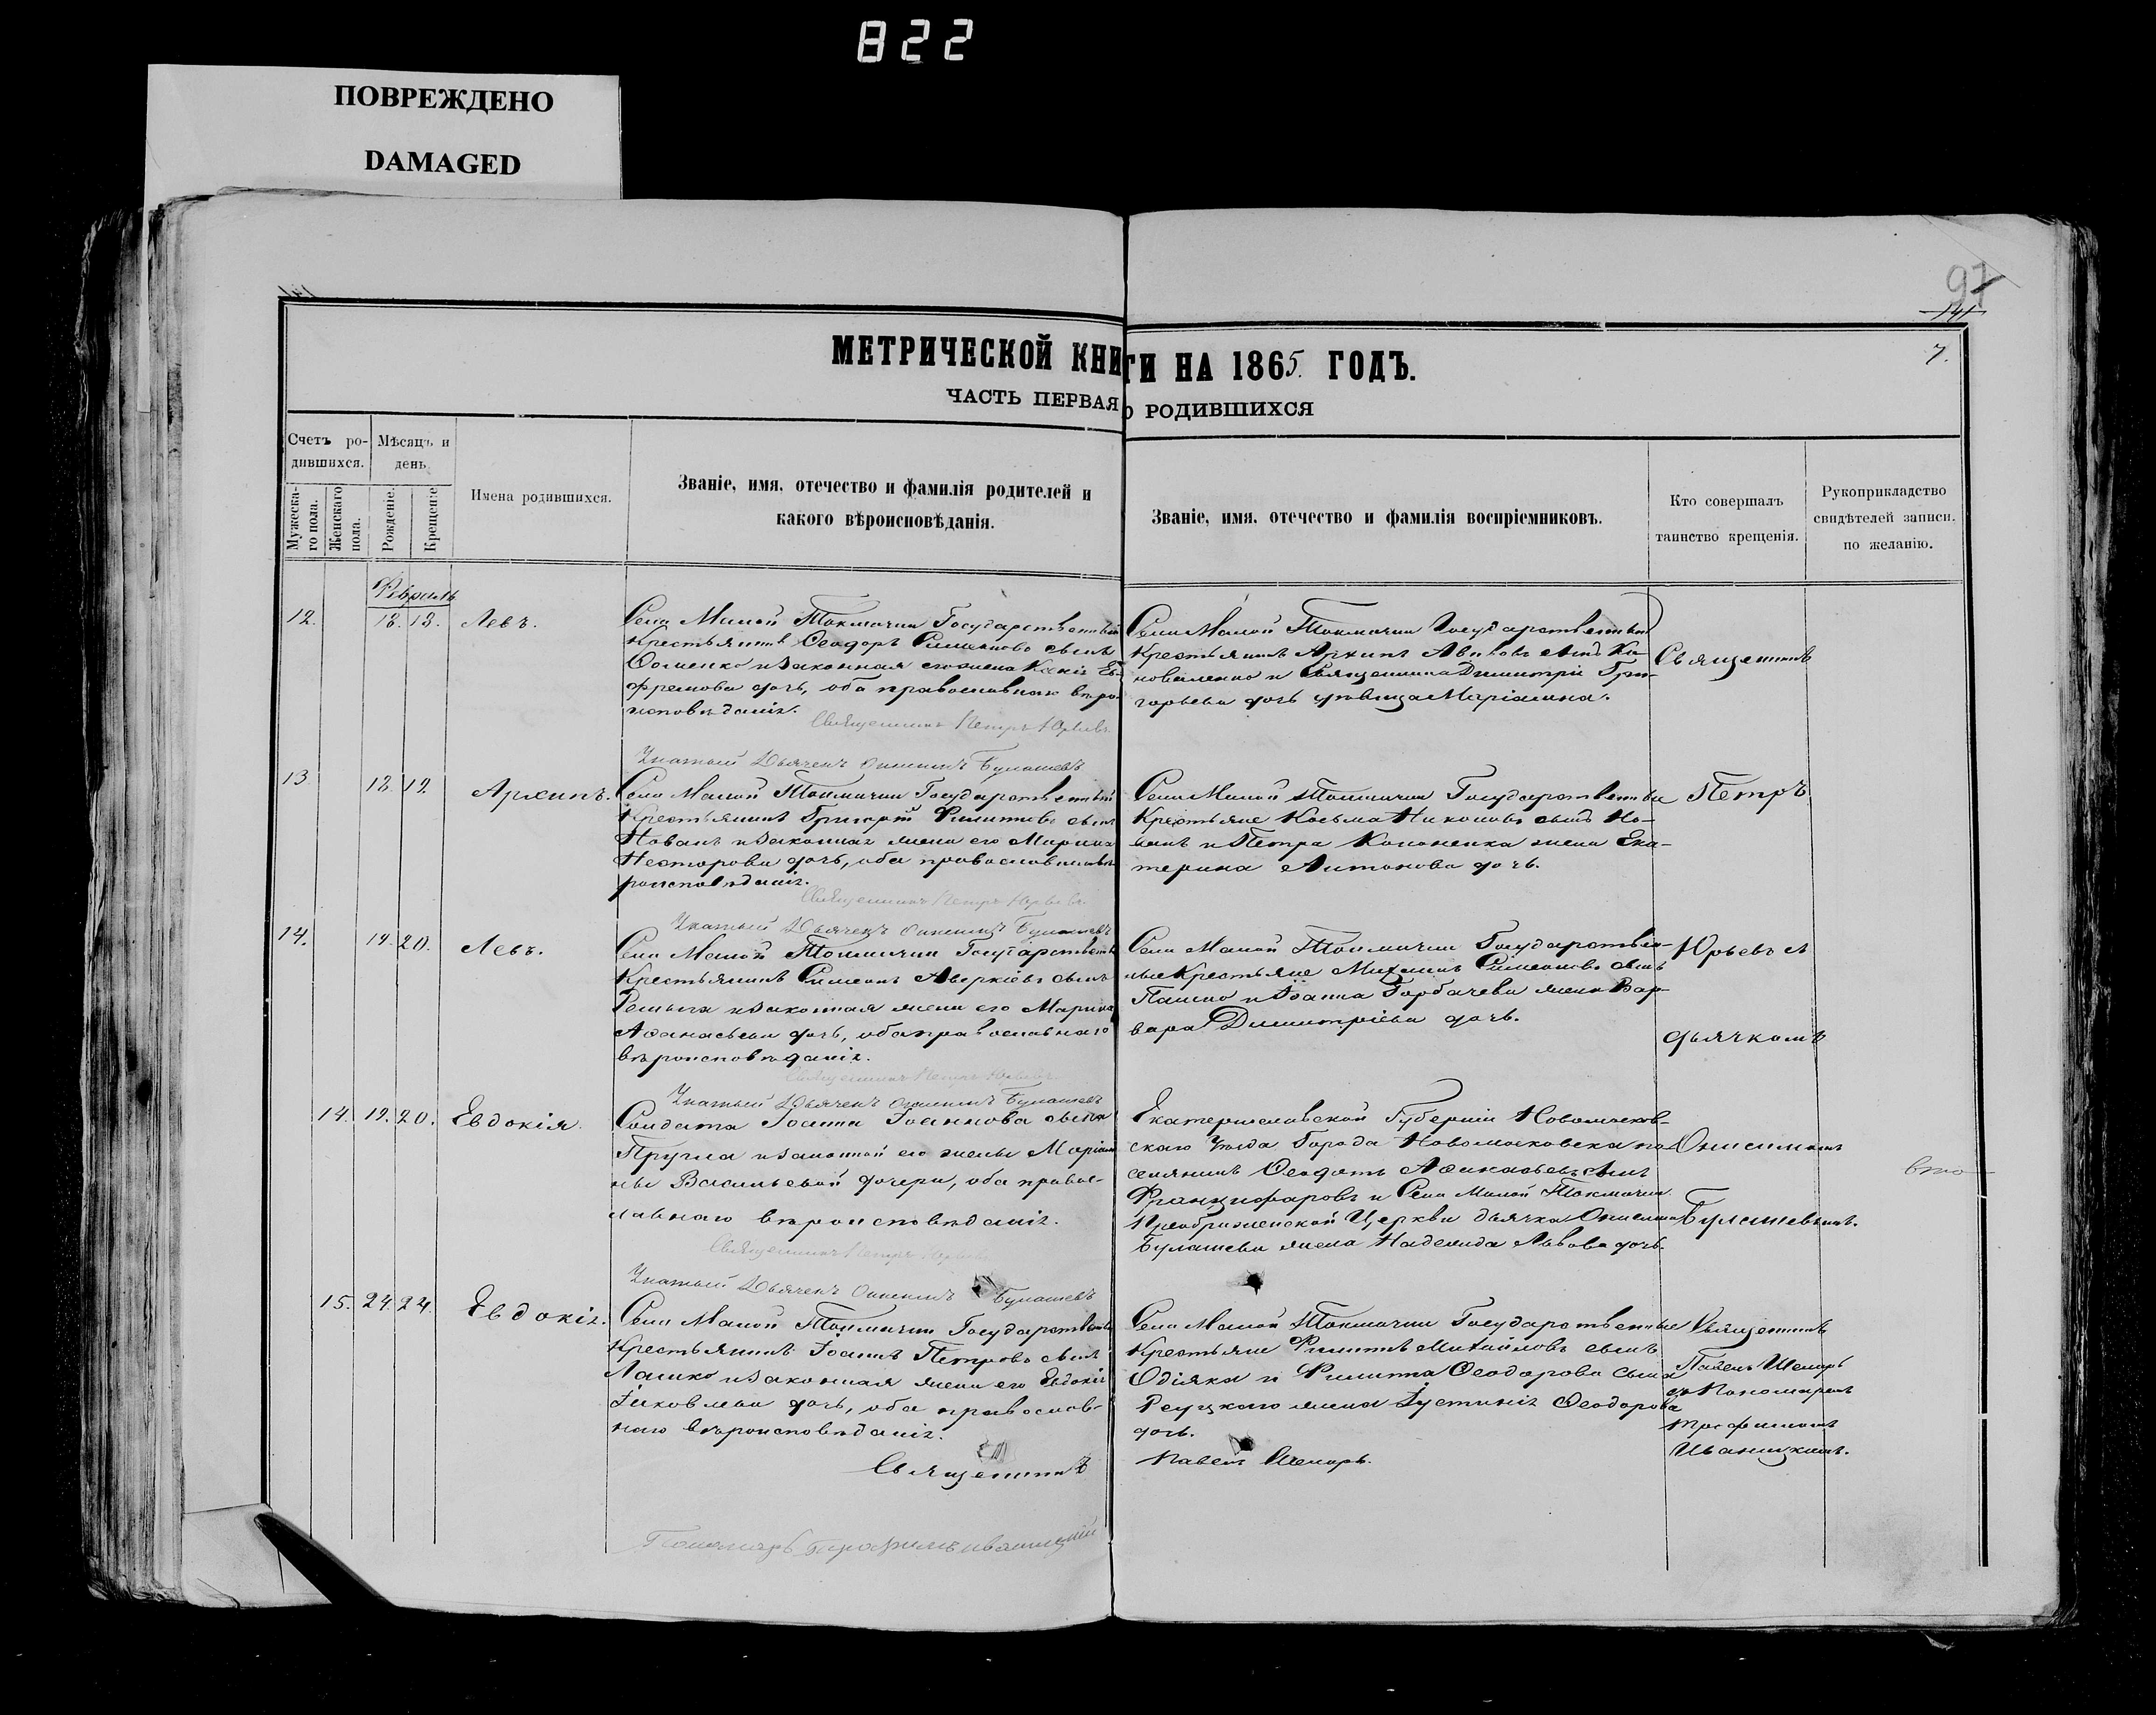 822
ПОВРЕЖДЕНО
DAMAGED
97
141
7.
МЕТРИЧЕСКОЙ КНИГИ НА 1865. ГОДЪ.
ЧАСТЬ ПЕРВАЯ О РОДИВШИХСЯ
Счетъ ро-
дившихся.
Мужеска-
го пола.
Женскаго
пола.
Мѣсяцъ и
день
Рожденіе.
Крещеніе
Имена родившихся.
Званіе, имя, отечество и фамилія родителей и
какого вѣроисповѣданія.
Званіе, имя, отечество и фамилія воспріемниковъ.
Кто совершалъ
таинство крещенія.
Рукоприкладство
свидѣтелей записи
по желанію.
Февраль
12. 13. 13. Левъ.
Села Малой Токмачки Государственный
крестьянинъ Ѳеодоръ Симеоновъ сынъ
и законная его жена Ксенія Ев-
фремова дочь, оба православнаго вѣро-
исповѣданія.
Священникъ Петръ Юрьевъ
Указный Дьячекъ Онисимъ Булашевъ
Села Малой Токмачки Государственный
крестьянинъ Архипъ сынъ Ко-
новаленко и Священника Димитрія Гри-
горьева дочь дѣвица Маріамна.
Священникъ
13 18. 19. Архипъ.
Села Малой Токмачки Государственный
Крестьянинъ Григорій Филиповъ сынъ
и законная жена его Марина
Несторова дочь, оба православнаго вѣ-
роисповѣданія.
Священникъ Петръ Юрьевъ
Указный Дьячекъ Онисимъ Булашевъ
Села Малой Токмачки Государственные
Крестьяне Косьма Никоновъ сынъ
и Петра Кононенка жена Ека-
терина Антонова дочь.
Петръ
14. 19. 20. Левъ.
Села Малой Токмачки Государственный
Крестьянинъ Симеонъ Аверкіевъ сынъ
и законная жена его Марина
Аѳанасьева дочь, оба православнаго
вѣроисповѣданія.
Священникъ Петръ Юрьевъ
Указный Дьячекъ Онисимъ Булашевъ
Села Малой Токмачки Государствен-
ные Крестьяне Михаилъ Симеоновъ сынъ
Пашко и Іоанна Горбачева жена Вар-
вара Димитріева дочь.
Юрьевъ съ
дьячкомъ
14. 19. 20. Евдокія.
Солдата Іоанна Іоаннова сына
и законной его жены Маріам-
ны Васильевой дочери, оба правос-
лавнаго вѣроисповѣданія.
Священникъ Петръ Юрьевъ
Указный Дьячекъ Онисимъ Булашевъ
Екатеринославской Губерніи Новомосков-
скаго Уѣзда Города Новомосковска по-
селянинъ Ѳеодотъ Аѳанасьевъ сынъ
и Села Малой Токмачки
Преображенской Церкви дьячка Онисима
Булашева жена Надежда Львова дочь.
Онисимомъ
Булашевымъ.
15. 24. 24. Евдокія.
Села Малой Токмачки Государственный
Крестьянинъ Іоаннъ Петровъ сынъ
Лашко и законная жена его Евдокія
Іаковлева дочь, оба православ-
наго вѣроисповѣданія.
Священникъ Павелъ Шемаръ.
Пономарь Трофимъ Иваницкій
Села Малой Токмачки Государственные
Крестьяне Филиппъ Михайловъ сынъ
Одіяка и Филиппа Ѳеодорова сына
Реуцкаго жена Іустинія Ѳеодорова
дочь.
Священникъ
Павелъ Шемаръ
съ Пономаремъ
Трофимомъ
Иваницкимъ.